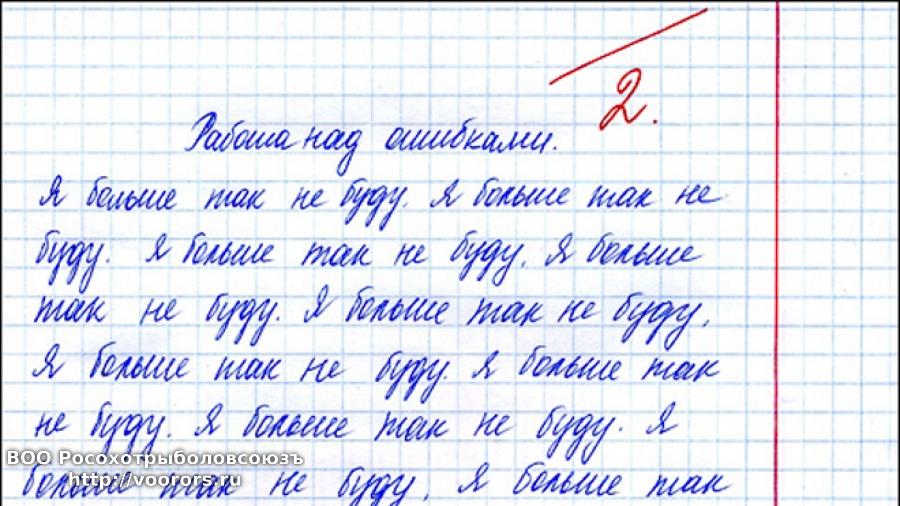 2.
Работа над ошибками.
Я больше так не буду. Я больше так не
буду. Я больше так не буду. Я больше
так не буду. Я больше так не буду.
Я больше так не буду. Я больше так
не буду. Я больше так не буду. Я
ВОО Росохотрыболовсоюзъ
http://voorors.ru
больше так не буду. Я больше так